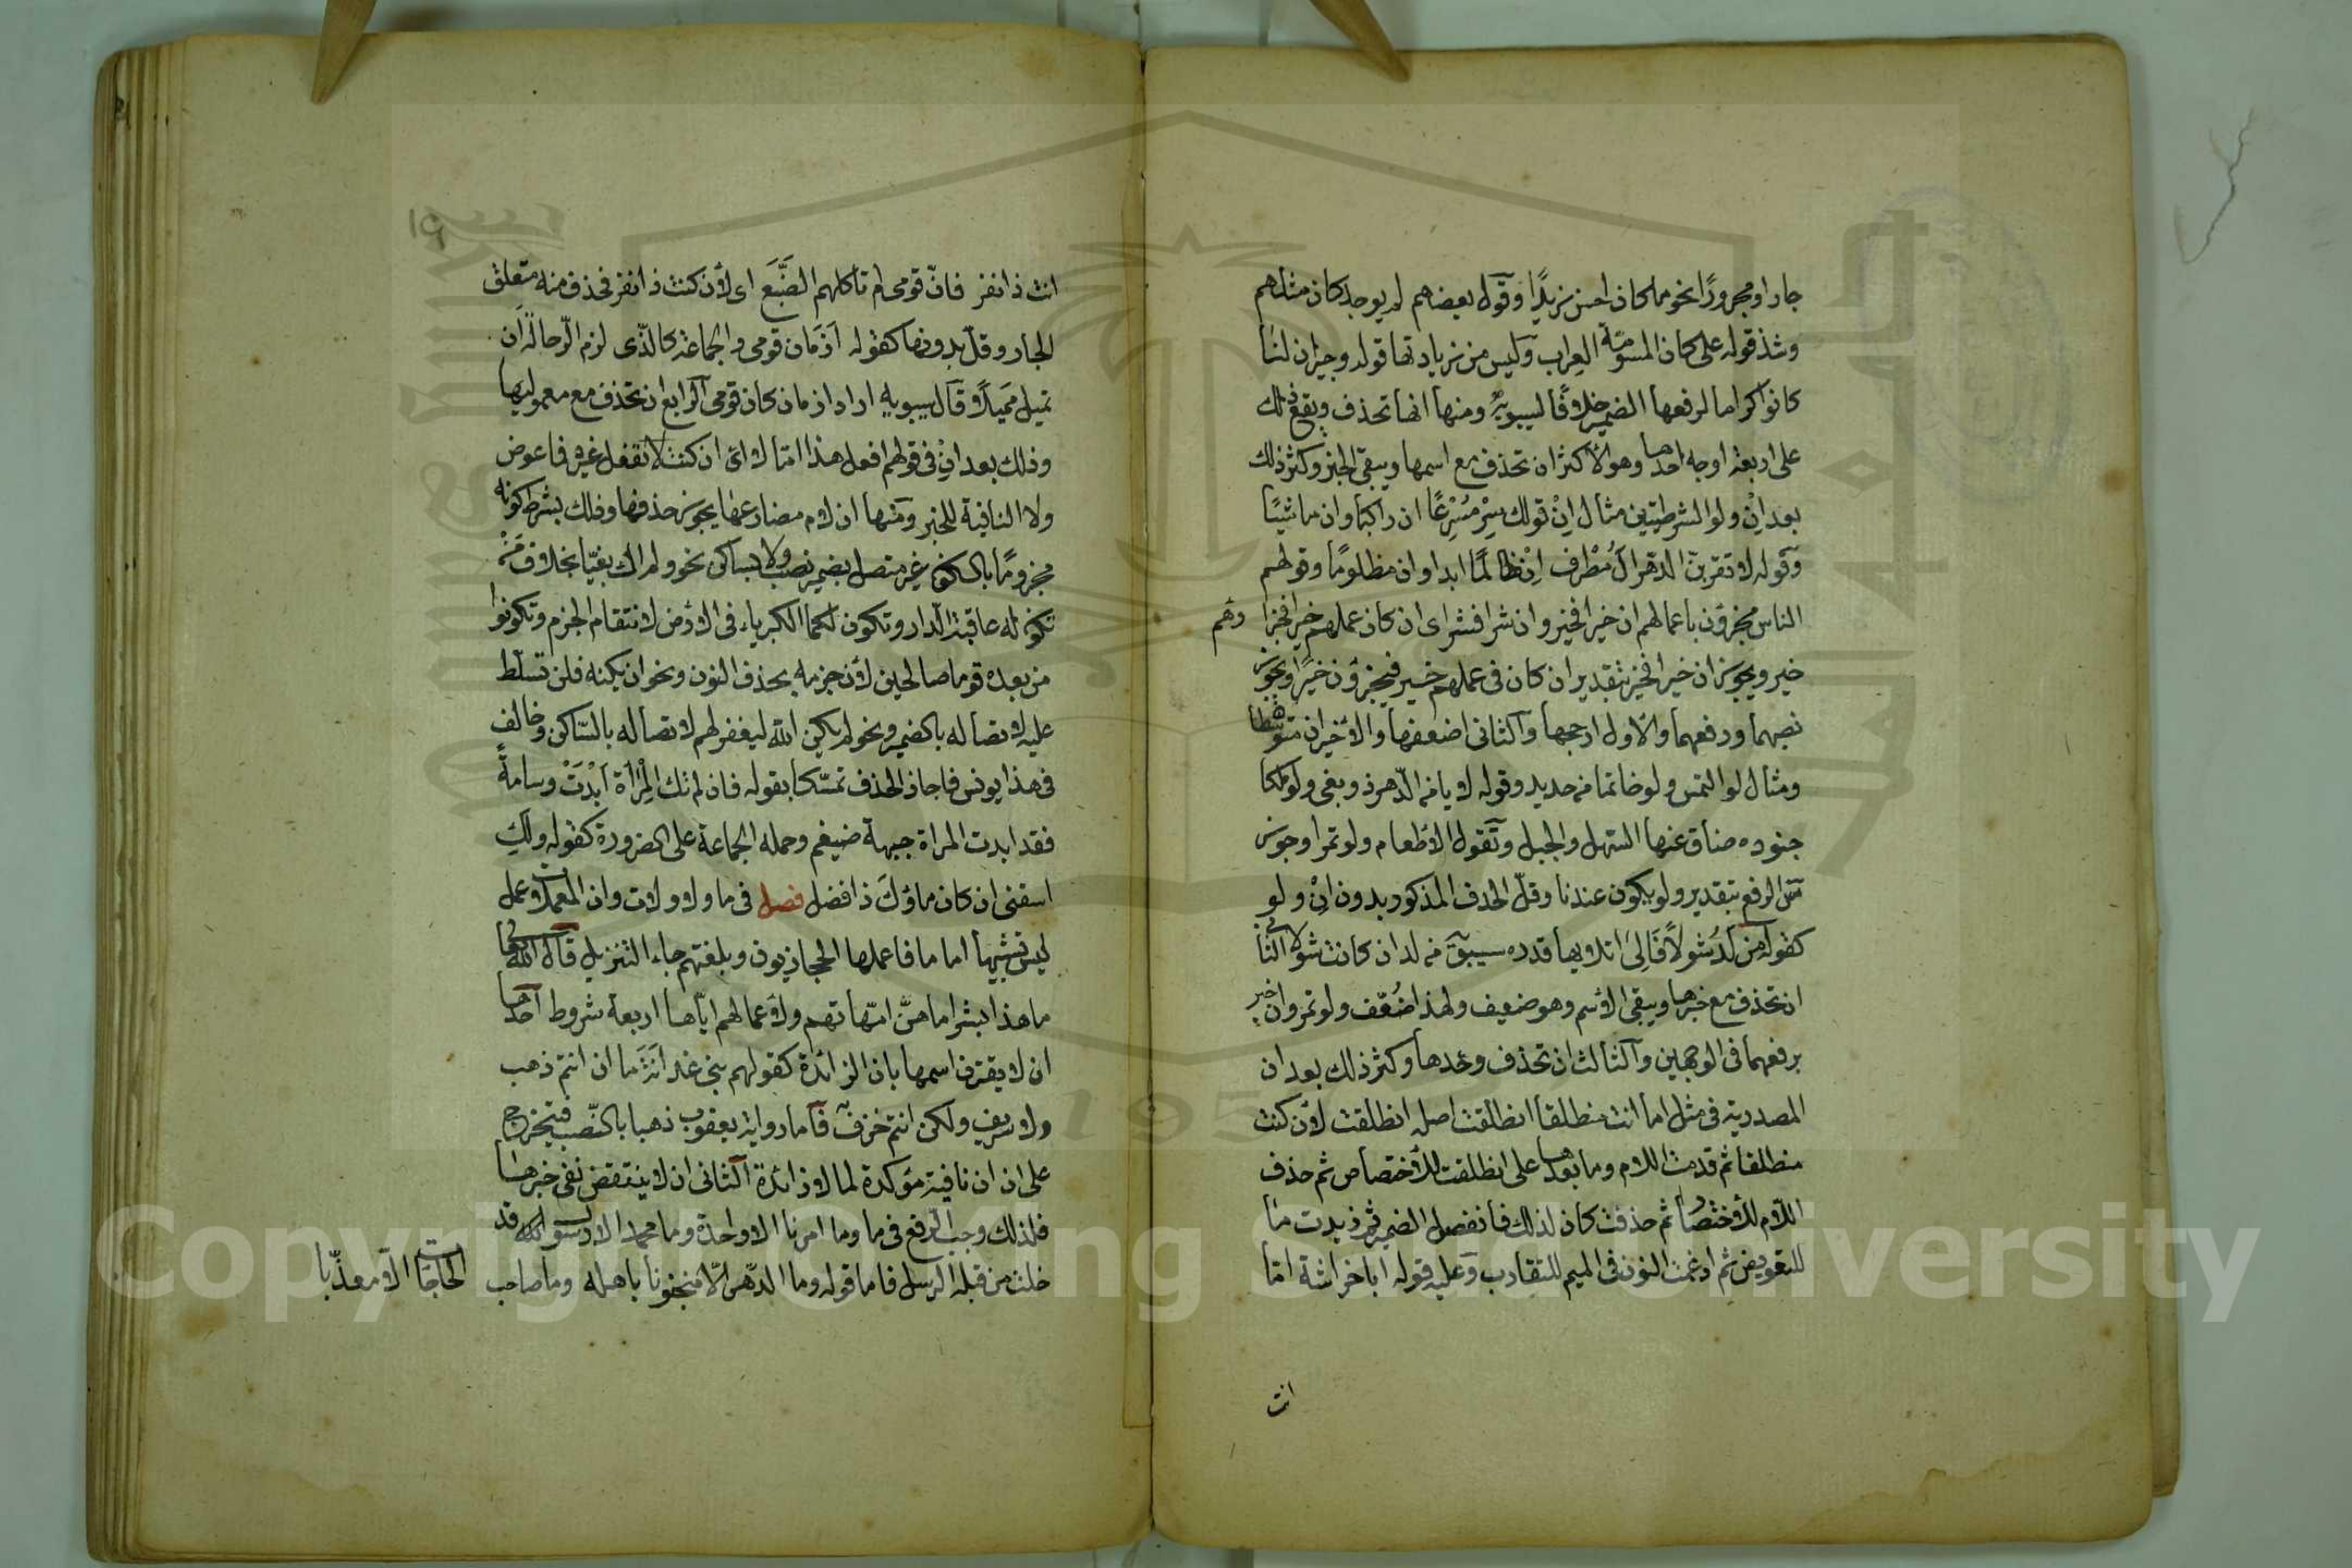 جارا ومجرورًا نحو ما كان احسن زيدًا وقول بعضهم لم يوجد كان مثلهم
وشذ قوله على كان المسومّة العراب وليس من زيادتها قوله وجيران لنا
كانوا كرام لرفعها الضمير خلافًا لسيبويه ومنها انها تحذف ويقع ذلك
على اربعة اوجه احدها وهو الاكثر ان تحذف مع اسمها ويبقى الخبر وكثر ذلك
بعد اِنْ ولو الشرطيتين مثال اِنْ قولك سِرْ مُسْرِعًا ان راكبا وان ماشيًا
وقوله لا تقربنّ الدهر آل مُطْرف اِنْ ظالمًا ابدا وان مظلومًا وقولهم
الناس مجزؤن باعمالهم ان خيرا فخير وان شرا فشر اى ان كان عملهم خيرا فجزاؤهم
خير ويجوز ان خير فخيرا بتقدير ان كان فى عملهم خير فيجزؤن خيرًا ويجوز
نصبهما ورفعهما والاول ارجحها والثانى اضعفها والاخيران متوسّطان
ومثال لو التمس ولو خاتما من حديد وقوله لا يامن الدّهر ذو بغى ولو ملكا
جنوده ضاق عنها السّهل والجبل وتقول الا طعام ولو تمرا وجوز
س الرفع بتقدير ولو يكون عندنا وقلّ الحذف المذكور بدون اِنْ ولو
كقوله من لَدُ شولاً فَاِلىَ اتلائها قدره سيبويه من لد ان كانت شولا الثانى
ان تحذف مع خبرها ويبقى الاسم وهو ضعيف ولهذا ضُعّف ولو تمر وان خير
برفعهما فى الوجهين والثالث ان تحذف وحدها وكثر ذلك بعد ان
المصدرية فى مثل اما انت منطلقا انطلقت اصله انطلقت لان كنت
منطلقا ثم قدمت اللام وما بعدها على انطلقت للاختصاص ثم حذف
اللّام للاختصار ثم حذفت كان لذلك فانفصل الضمير ثم زيدت ما
للتعويض ثم ادغمت النون فى الميم للتقارب وعليه قوله ابا خراشة امّا
انت
١٩
انت ذا نفر فانّ قومى لم تاكلهم الضَّبُع اى لأن كنت ذا نفر فخرت فحذف منه متعلق
الجار وقلّ بدونها كقوله اَزمَان قومى والجماعة كالذّى لزم الرّحالةَ ان
تميل مَميلاً وقال سيبويه اراد ازمان كان قومى الرابع ان تحذف مع معموليها
وذلك بعد اِنْ فى قولهم افعل هذا امّا لا اى ان كنت لا تفعل غيره فما عوض
ولا النافية للخبر ومنها ان لام مضارعها يجوز حذفها وذلك بشرط كونه
مجزومًا بالسكون غير متصل بضمير نصب ولا بساكن نحو ولم اك بغيّا بخلاف مَنْ
تكون له عاقبة الدار وتكون لكما الكبرياء فى الارض لانتفاء الجزم وتكونوا
من بعده قوما صالحين لأن جزمه بحذف النون ونحو ان يكنه فلن تسلّط
عليه لاتصاله بالضمير ونحو لم يكن اللّه ليغفر لهم لاتصاله بالسّاكن وخالف
فى هذا يونس فاجاز الحذف تمسّكا بقوله فان لم تك المِرْآة اَبْدَتْ وسامةً
فقد ابدت المراة جبهة ضيغم وحمله الجماعة على الضرورة كقوله ولكِ
اسقنى ان كان ماؤك ذا فضل فصل فى ما ولا ولات وان المعملات عمل
ليس تشبيها اما ما فاعملها الحجازيون وبلغتهم جاء التنزيل قال اللّه تعالى
ما هذا بشرا ما هنّ امّهاتهم ولاعمالهم ايّاها اربعة شروط احدها
ان لا يقترن اسمها بان الزائدة كقولهم بنى غدانة ما ان انتم ذهب
ولا صريف ولكن انتم خزف فاما رواية يعقوب ذهبا بالنّصب فتخرج
على ان ان نافية مؤكدة لما لا زائدة الثانى ان لا ينتقض نفى خبرها
فلذلك وجب الرفع فى ما وما امرنا الا واحدة وما محمد الا رسول قد
خلت من قبله الرسل فاما قوله وما الدّهر الّا منجنونا باهله وما صاحب الحاجات الّا معذّبا